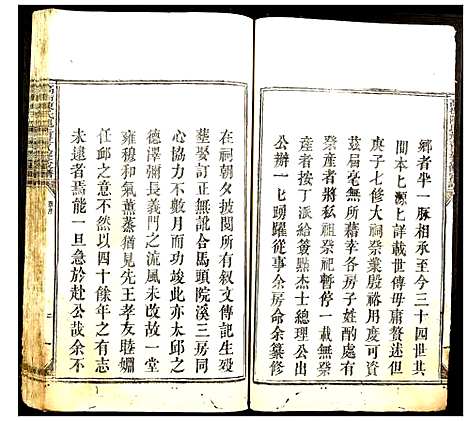 鄉者半一脈相承至今三十四世共
間本七瀨七詳載世傳毋庸贅述但
庚子七修大祠祭業殷裕用度侈靡
茲屆毫無所藉幸各房子姓酌處有
祭產者將私祖祭祀暫停一載無祭
產者按丁派給簽點杰士總理公出
公辦一七踴躍從事余房命余纂修
在祠朝夕披閱所有叙文傳記生殁
塟娶訂正無訛合馬頭院溪三房同
心協力不數月而功竣此亦太邱之
德澤彌長義門之流風未改故一堂
雍穆和氣薰蒸猶見先王孝友睦婣
任䘏之風焉不然以四十餘年之有志
未逮者焉能一旦急於赴公哉余不